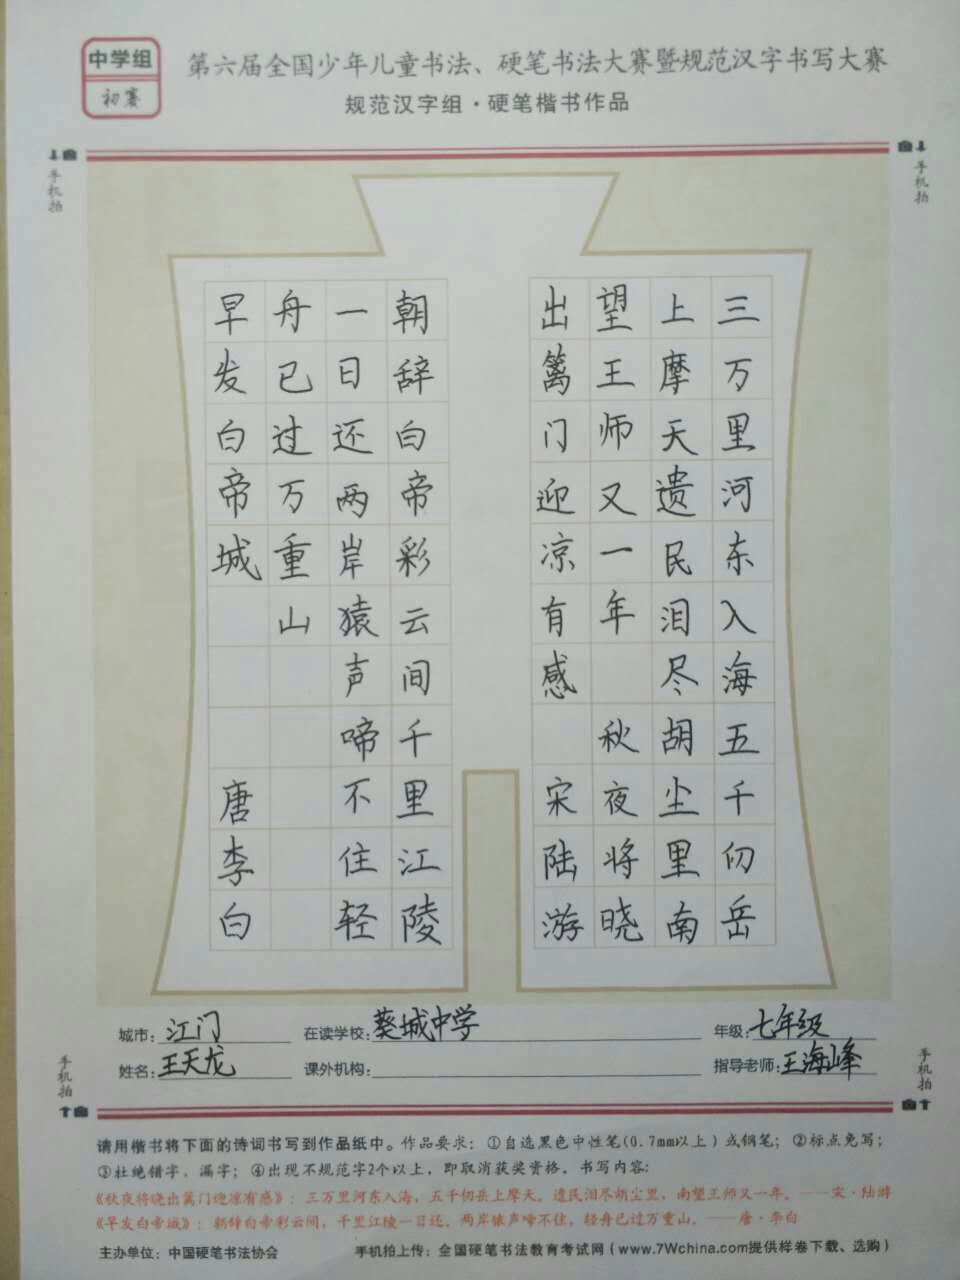 中学组
初赛
第六届全国少年儿童书法、硬笔书法大赛暨规范汉字书写大赛
规范汉字组·硬笔楷书作品
手机拍
手机拍
三万里河东入海五千仞岳
上摩天遗民泪尽胡尘里南
望王师又一年 秋夜将晓
出篱门迎凉有感 宋陆游
朝辞白帝彩云间千里江陵
一日还两岸猿声啼不住轻
舟已过万重山
早发白帝城 唐李白
城市：江门 在读学校：葵城中学 年级：七年级
姓名：王天龙 课外机构： 指导老师：王海峰
手机拍
手机拍
请用楷书将下面的诗词书写到作品纸中。作品要求：①自选黑色中性笔(0.7mm以上）或钢笔；②标点免写；
③杜绝错字、漏字；④出现不规范字2个以上，即取消获奖资格。书写内容：
《秋夜将晓出篱门迎凉有感》：三万里河东入海，五千仞岳上摩天。遗民泪尽胡尘里，南望王师又一年。——宋·陆游
《早发白帝城》：朝辞白帝彩云间，千里江陵一日还。两岸猿声啼不住，轻舟已过万重山。——唐·李白
主办单位：中国硬笔书法协会 手机拍上传：全国硬笔书法教育考试网（www.7Wchina.com提供样卷下载、选购）